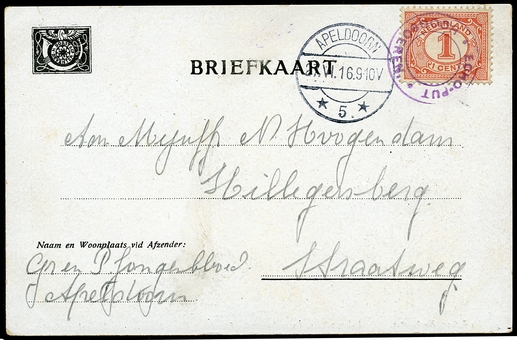 BRIEFKAART
APELDOORN
VI.16.9-10V
★ 5. ★
NEDERLAND
1
CENT
ECHO-PUT
Aan Mejuffr N Hoogendam
Hillegersberg
Straatweg
Naam en Woonplaats v/d Afzender:
G en P Jongerbloed
Apeldoorn